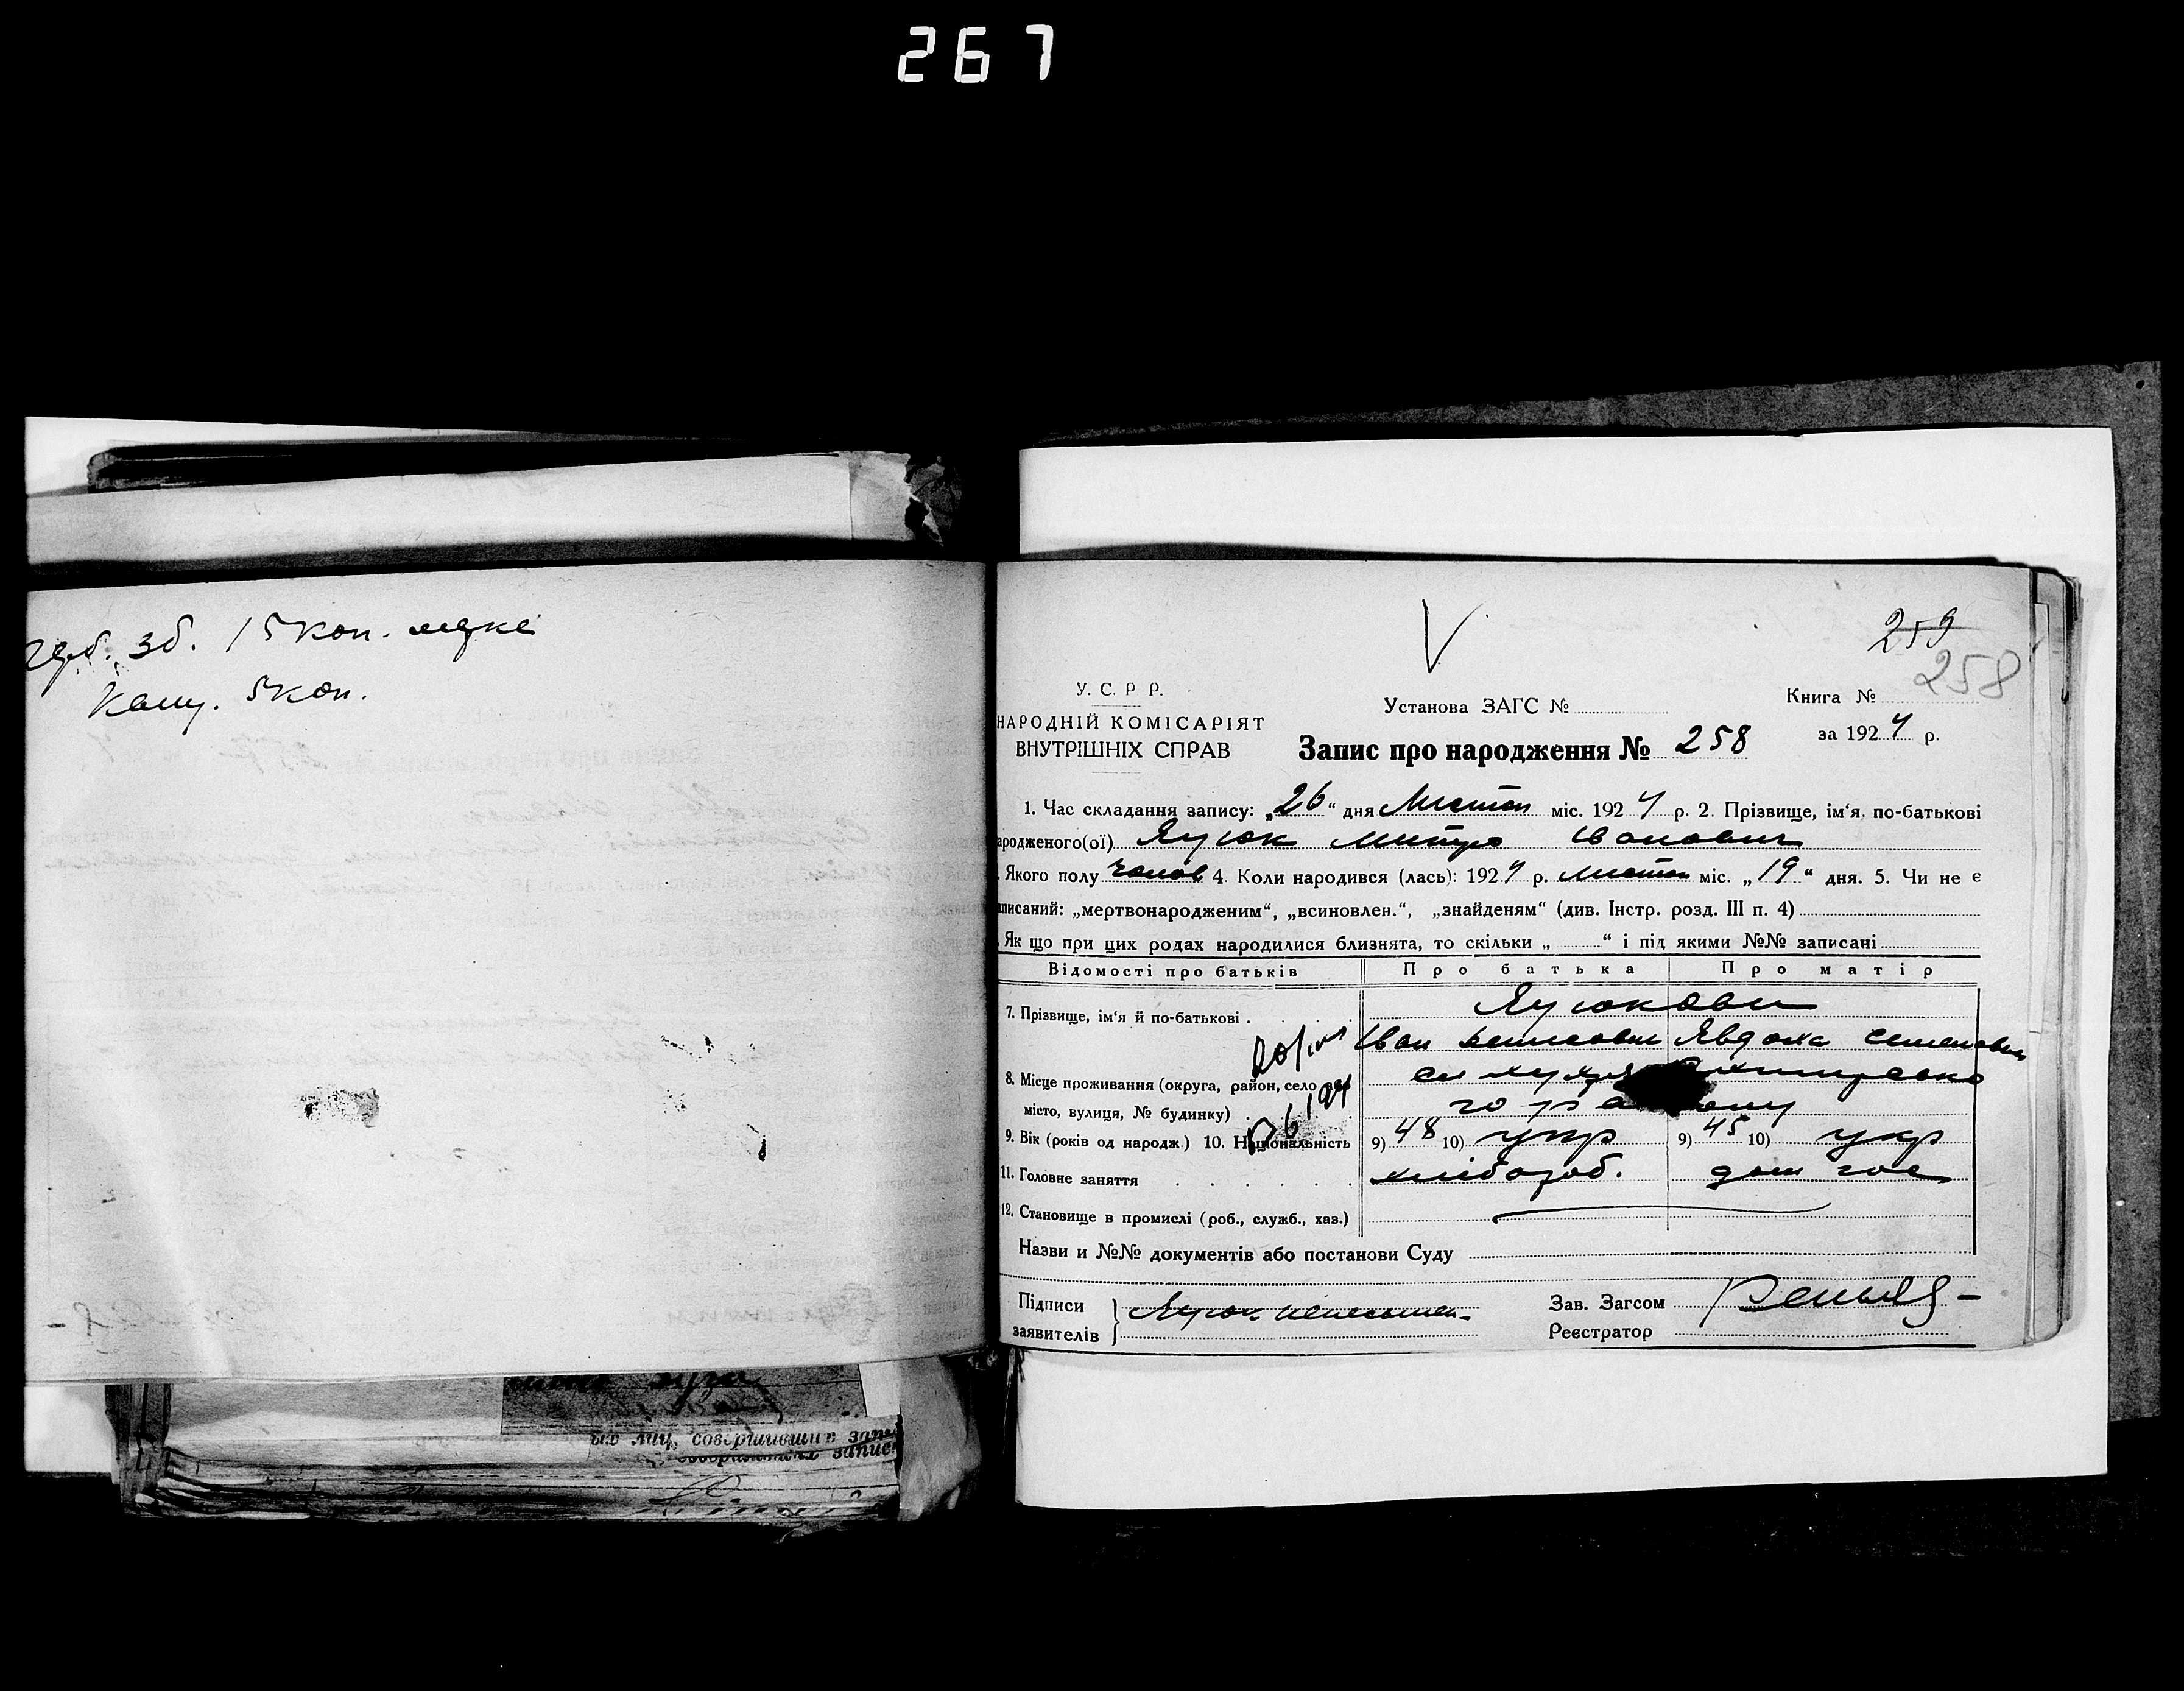 267
герб. зб. 15 коп.
Канц. 5 коп.
259
258
У. С. Р Р.
НАРОДНІЙ КОМІСАРІЯТ
ВНУТРІШНІХ СПРАВ
Установа ЗАГС №
Книга №
за 1924 р.
Запис про народження № 258
1. Час складання запису: „26“ дня Листоп міс. 1924 р. 2. Прізвище, ім‘я, по-батькові
ародженого(ої) Яцюк Митро Іванович
Якого полу чолов 4. Коли народився (лась): 1924 р. листоп міс. „19“ дня. 5. Чи не є
аписаний: „мертвонародженим“, „всиновлен.“, „знайденям“ (див. Інстр. розд. III п. 4)
Як що при цих родах народилися близнята, то скільки „ “ і під якими №№ записані
Відомості про батьків Про батька Про матір
7. Прізвище, ім‘я й по-батькові . Яцюкови
Іван Денисович Явдоха Семеновна
8. Місце проживання (округа, район, село або
місто, вулиця, № будинку) .
9. Вік (років од народж.) 10. Національність 9) 48 10) укр 9) 45 10) укр
11. Головне заняття хлібороб. дом гос
12. Становище в промислі (роб., служб., хаз.)
Назви и №№ документів або постанови Суду
Підписи
заявителів
Яцюк неписьмен-
Зав. Загсом
Реєстратор
ых лиц, совершивших запи